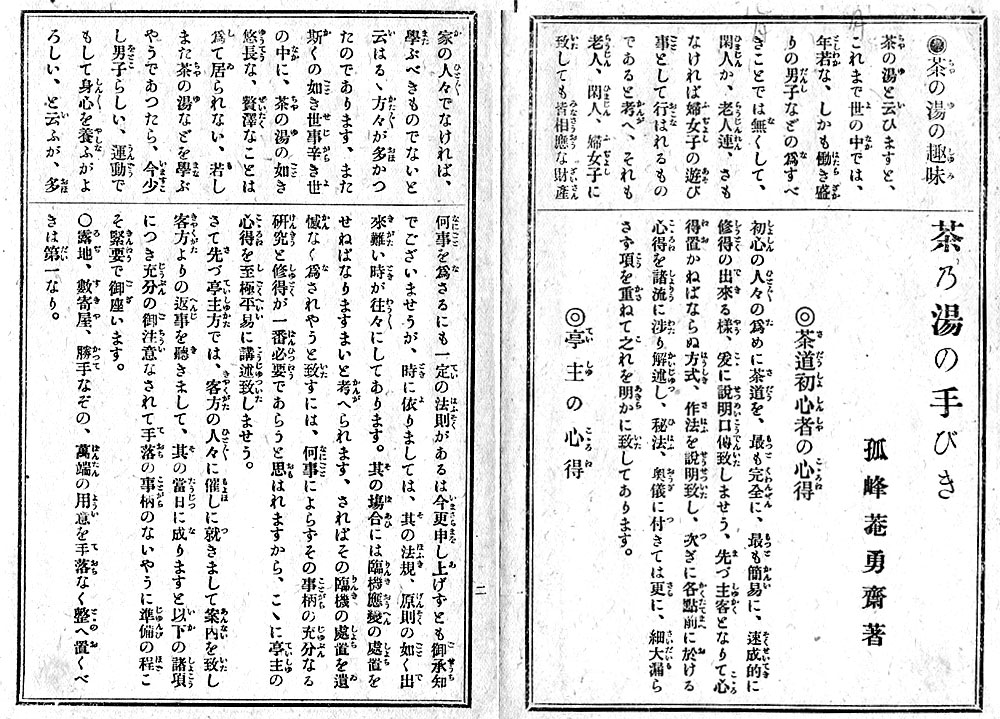 ◉茶の湯の趣味
茶の湯と云ひますと、
これまで世の中では、
年若な、しかも働き盛
りの男子などの爲すべ
きことでは無くして、
閑人か、老人連、さも
なければ婦女子の遊び
事として行はれるもの
であると考へ、それも
老人、閑人、婦女子に
致しても皆相應な財產
茶乃湯の手びき
孤峰菴勇齋著
◎茶道初心者の心得
初心の人々の爲めに茶道を、最も完全に、最も簡易に、速成的に
修得の出來る樣、爰に説明口傳致しませう、先づ主客となりて心
得置かねばならぬ方式、作法を説明致し、次ぎに各點前に於ける
心得を諸流に渉り解述し、秘法、奧儀に付きては更に、細大漏ら
さす項を重ねて之れを明かに致してあります。
◎亭主の心得
家の人々でなければ、
學ぶべきものでないと
云はるゝ方々が多かつ
たのであります、また
斯くの如き世事辛き世
の中に、茶の湯の如き
悠長な、贅澤なことは
爲て居られない、若し
また茶の湯などを學ぶ
やうであつたら、今少
し男子らしい、運動で
もして身心を養ふがよ
ろしい、と云ふが、多
何事を爲さるにも一定の法則があるは今更申し上げすとも御承知
でございませうが、時に依りましては、其の法規、原則の如く出
來難い時が往々にしてあります。其の場合には臨機應變の處置を
せねばなりますまいと考へられます、さればその臨機の處置を遺
憾なく爲されやうと致すには、何事によらずその事柄の充分なる
研究と修得が一番必要であらうと思はれますから、こゝに亭主の
心得を至極平易に講述致しませう。
さて先づ亭主方では、客方の人々に催しに就きまして案内を致し
客方よりの返事を聽きまして、其の當日に成りますと以下の諸項
につき充分の御注意なされて手落の事柄のないやうに準備の程こ
そ緊要で御座います。
〇露地、數寄屋、勝手なぞの、萬端の用意を手落なく整へ置くべ
きは第一なり。
二